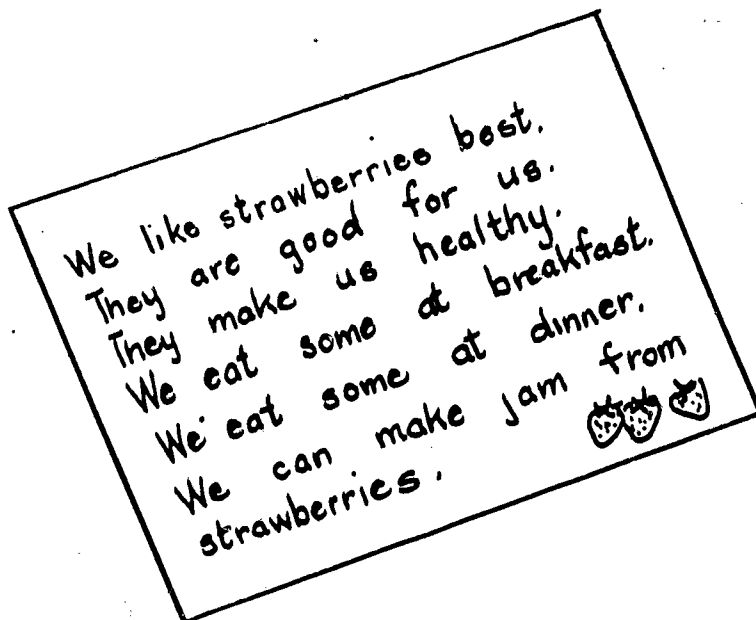 We like strawberries best.
They are good for us.
They make us healthy.
We eat some at breakfast.
We eat some at dinner.
We can make jam from
strawberries.